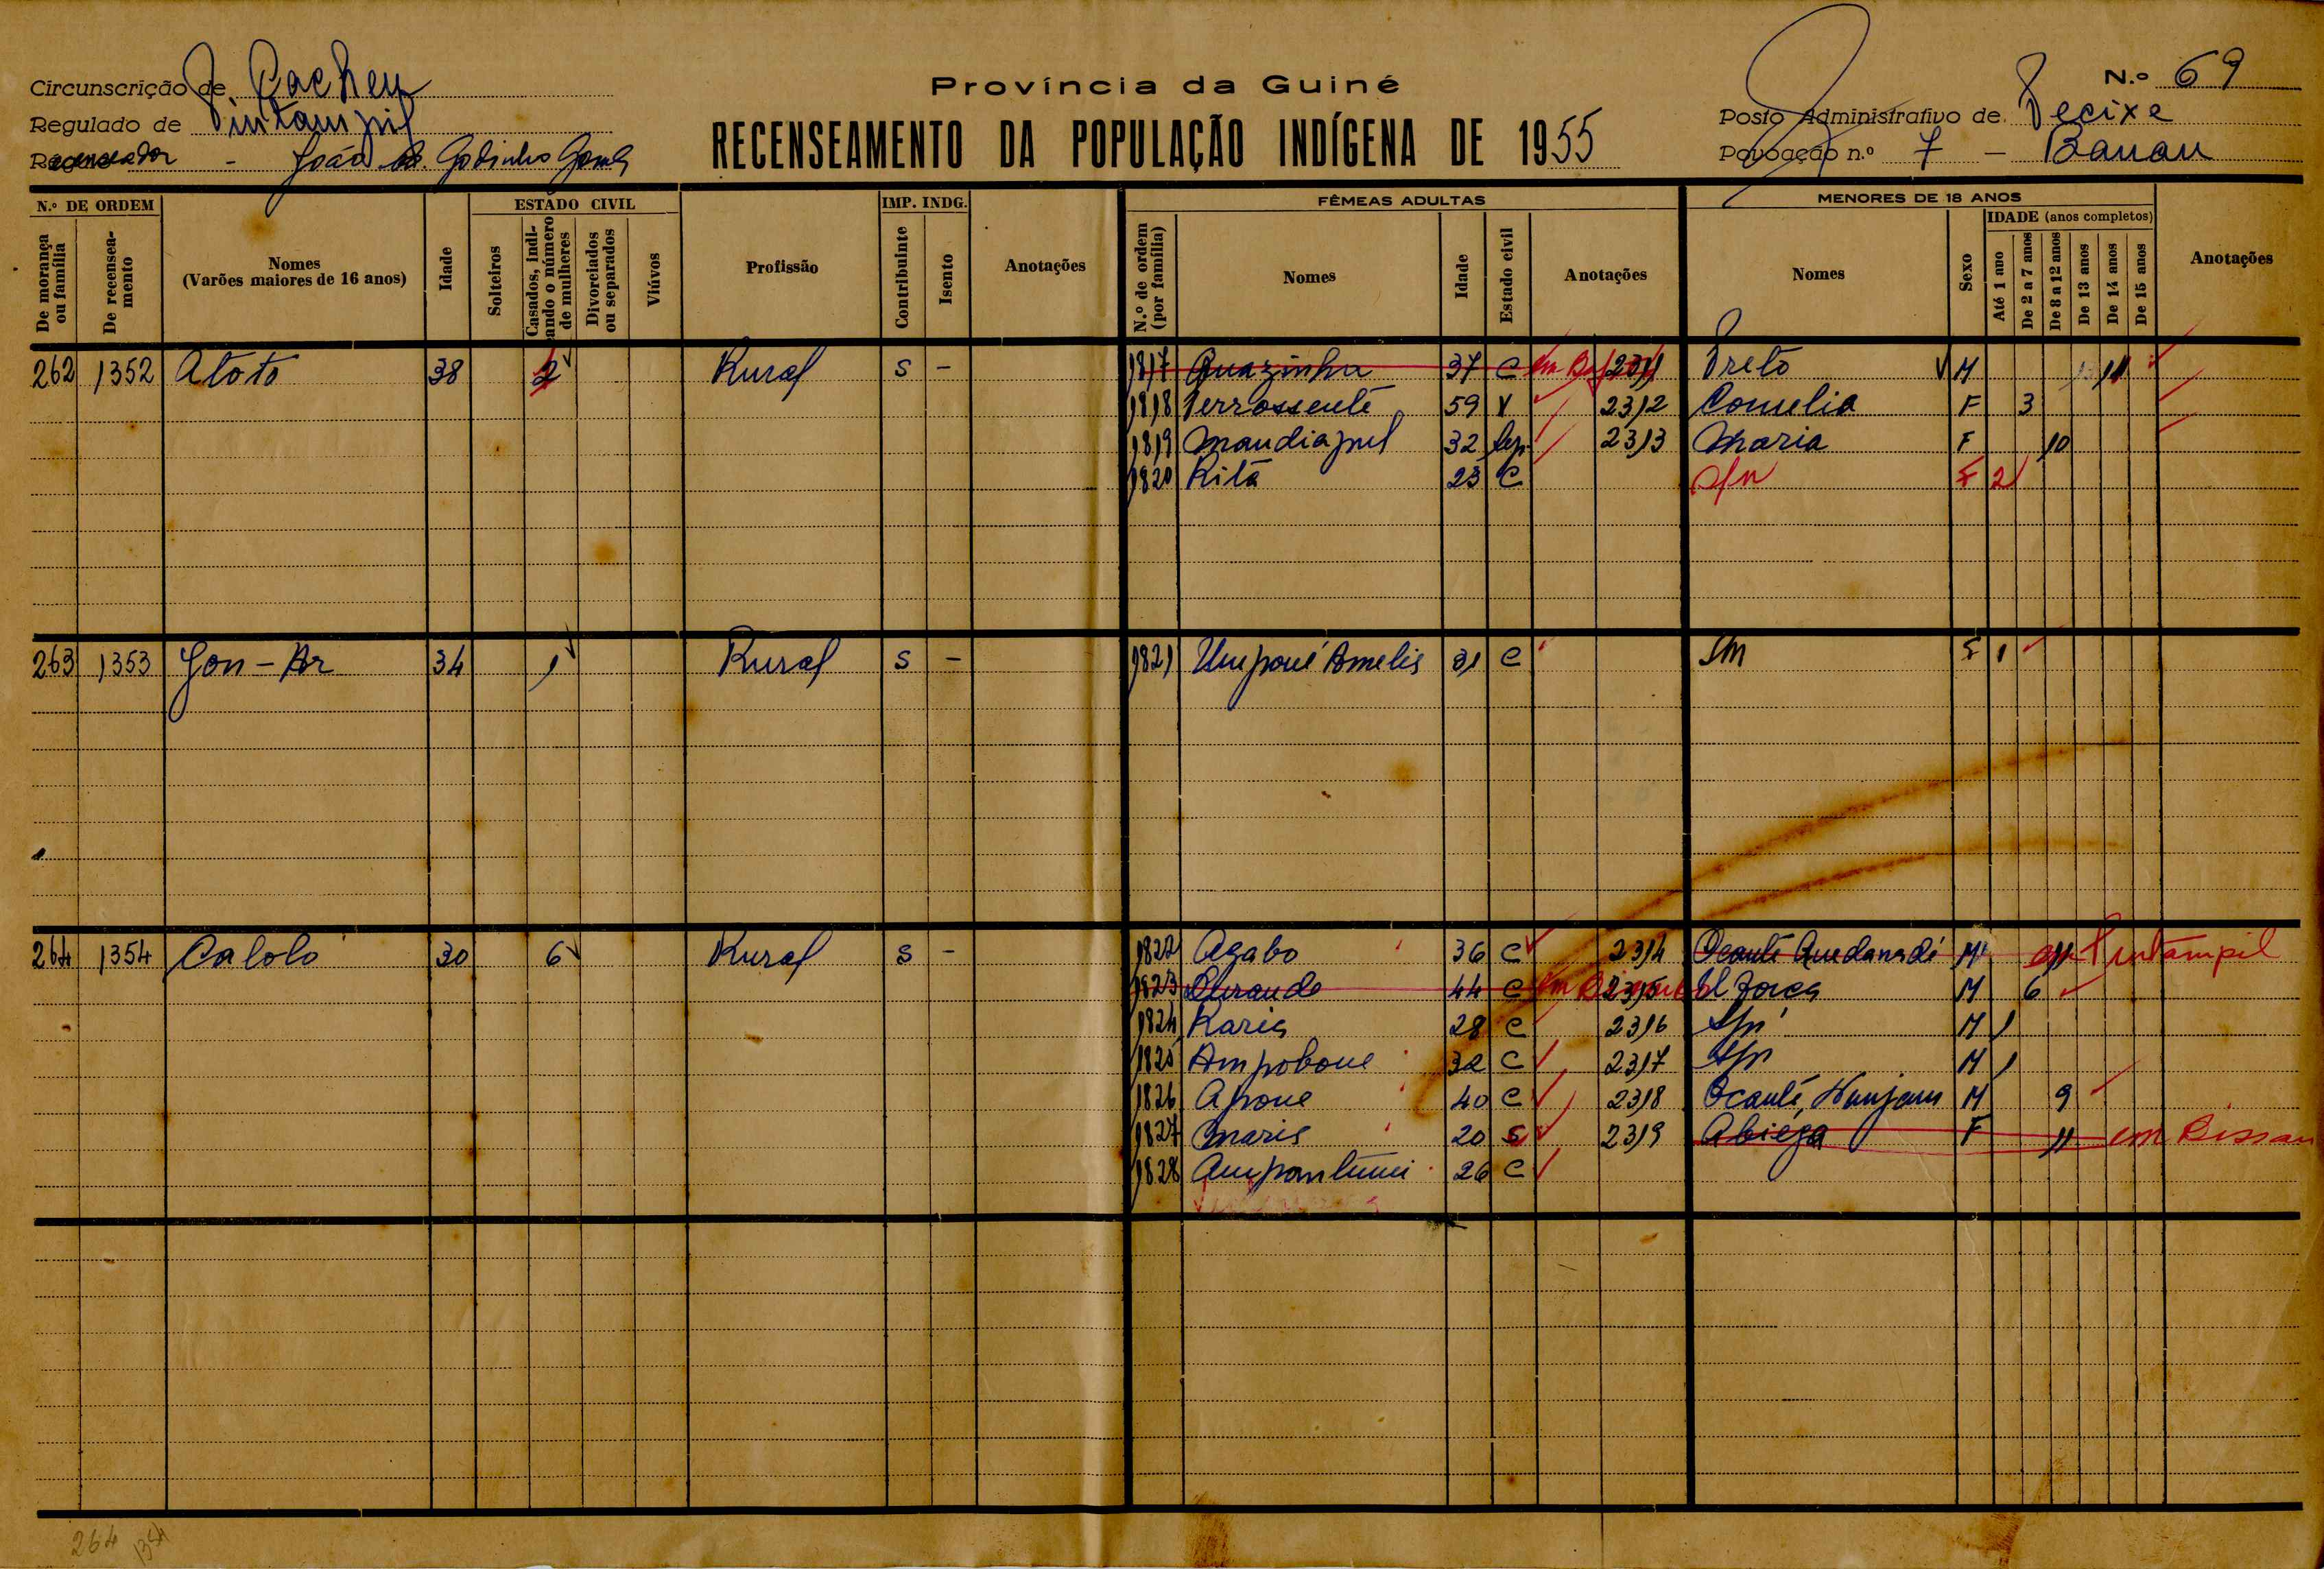 Circunscrição de Cacheu
Província da Guiné
N.º 69
Regulado de Pintampil
Posto Administrativo de Pecixe
Recenseador - João Godinho Gomes
RECENSEAMENTO DA POPULAÇÃO INDÍGENA DE 1955
Povoação n.º 7 - Banau
N.º DE ORDEM
ESTADO CIVIL
IMP. INDG.
FÊMEAS ADULTAS
MENORES DE 18 ANOS
IDADE (anos completos)
De morança ou família
De recenseamento
Nomes
(Varões maiores de 16 anos)
Idade
Solteiros
Casados, indicando o número de mulheres
Divorciados ou separados
Viúvos
Profissão
Contribuinte
Isento
Anotações
N.º de ordem (por família)
Nomes
Idade
Estado civil
Anotações
Nomes
Sexo
Até 1 ano
De 2 a 7 anos
De 8 a 12 anos
De 13 anos
De 14 anos
De 15 anos
Anotações
262 1352 Atoto 38 2 Rural S - 1817 Quazinha 37 C em 2311 Preto M 11
1818 Perrossenté 59 V 2312 Cornelia F 3
1819 Mandiapul 32 Sep. 2313 Maria F 10
1820 Rita 23 C s/n F 2
263 1353 Jon-Ar 34 1 Rural S - 1821 Umpoué Amelis 31 C s/n F 1
264 1354 Calolo 30 6 Rural S - 1822 Agabo 36 C 2314 Ocanté Quedanadé M 11 em Pintampil
1823 44 C em 2315 M 6
1824 Karia 28 C 2316 s/n M 1
1825 Ampoboue 32 C 2317 s/n M 1
1826 Apoue 40 C 2318 Ocanté, Nunjam M 9
1827 Maris 20 S 2319 Abiega F 11 em Bissau
1828 Ampantumi 26 C
264 1354